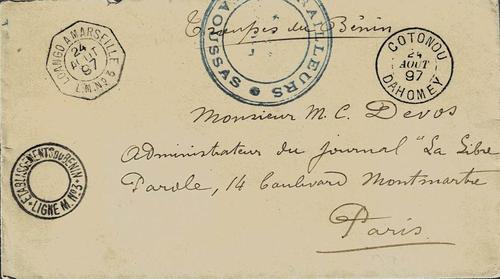 LOANGO A MARSEILLE
24
AOUT
97
L.M. No 3
Troupes du Bénin
TIRAILLEURS
HAOUSSAS
COTONOU
24
AOUT
97
DAHOMEY
Monsieur M. C. Devos
Administrateur du Journal "La Libre
Parole, 14 Boulevard Montmartre
Paris
ETABLISSEMENTS DU BENIN
LIGNE M. No 3